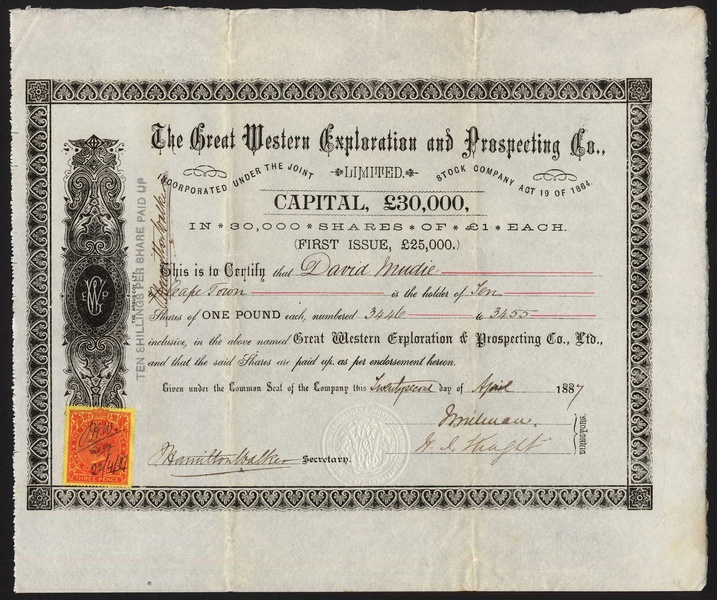 The Great Western Exploration and Prospecting Co.,
INCORPORATED UNDER THE JOINT LIMITED. STOCK COMPANY ACT 19 OF 1864.
CAPITAL, £30,000,
IN * 30,000 * SHARES * OF * £1 * EACH.
(FIRST ISSUE, £25,000.)
This is to Certify that David Mudie
of Cape Town is the holder of Ten
Shares of ONE POUND each, numbered 3446 to 3455
inclusive, in the above named Great Western Exploration & Prospecting Co., Ltd.,
and that the said Shares are paid up, as per endorsement hereon.
Given under the Common Seal of the Company this Twentysecond day of April 1887
W. J. Knight
Directors
PHamiltonWalker Secretary.
TEN SHILLINGS PER SHARE PAID UP
THREE PENCE